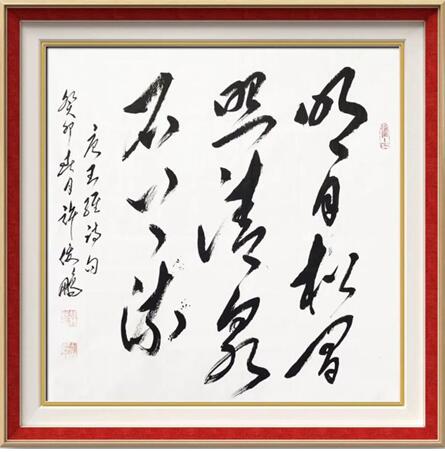 明月松間
照清泉
石上流
唐王維詩句
癸卯春月许俊鹏